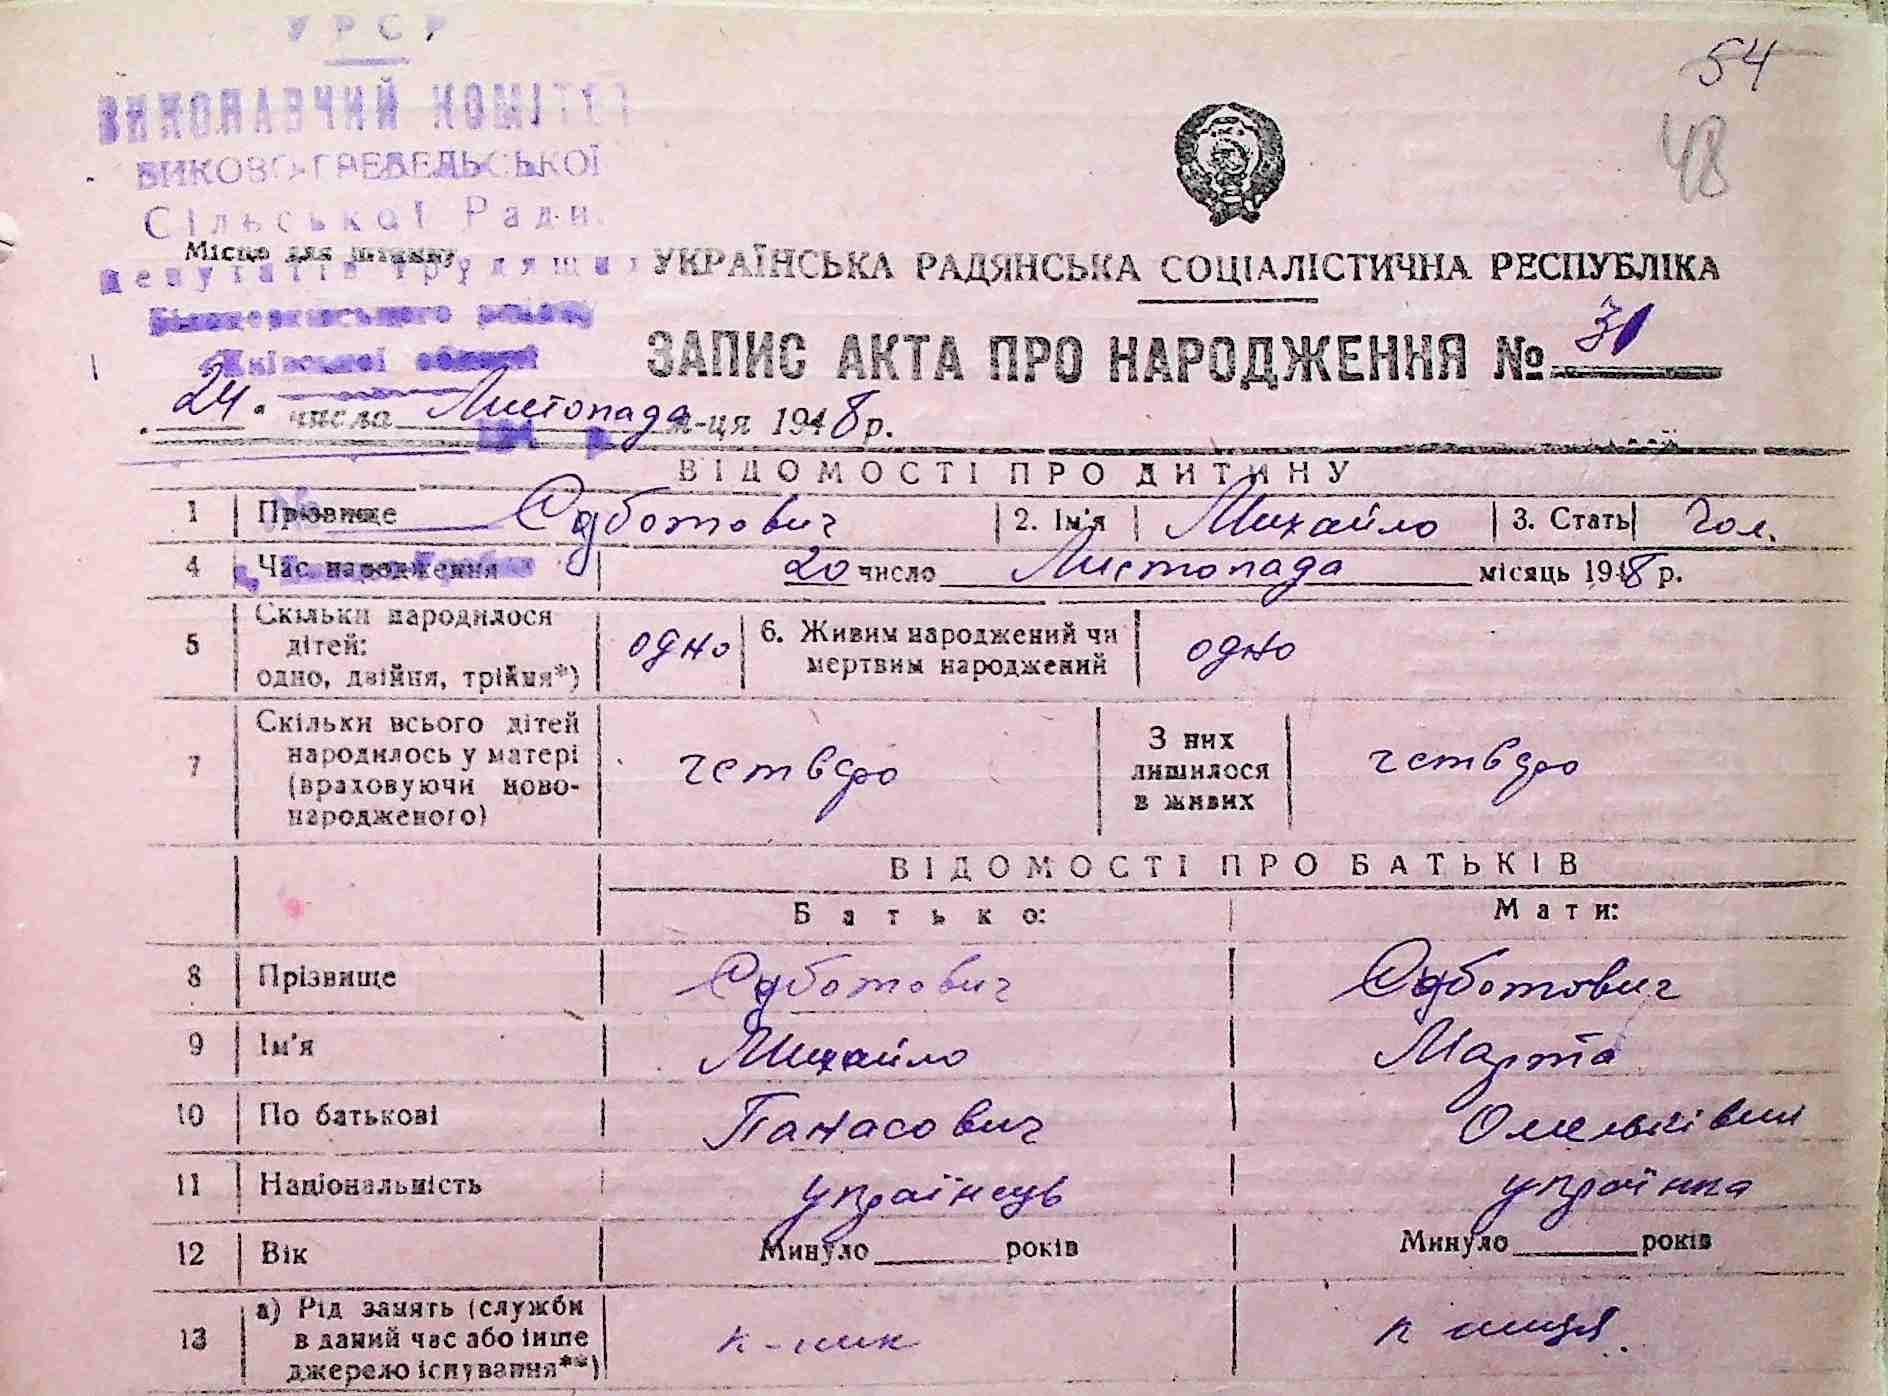 УРСР
54
ВИКОНАВЧИЙ КОМІТЕТ
48
БИКОВОГРЕБЕЛЬСЬКОЇ
Сільської Ради
Місце для штампу
Депутатів трудящих
УКРАЇНСЬКА РАДЯНСЬКА СОЦІАЛІСТИЧНА РЕСПУБЛІКА
Білоцерківського району
Київської області
ЗАПИС АКТА ПРО НАРОДЖЕННЯ № 31
24 числа Листопада м-ця 1948 р.
194 р.
ВІДОМОСТІ ПРО ДИТИНУ
1 Прізвище Суботович 2. Ім'я Михайло 3. Стать Чол.
4 Час народження 20 число Листопада місяць 1948 р.
5 Скільки народилося дітей: одно, двійня, трійня*) одно 6. Живим народжений чи мертвим народжений одно
7 Скільки всього дітей народилось у матері (враховуючи ново-народженого) четверо З них лишилося в живих четверо
ВІДОМОСТІ ПРО БАТЬКІВ
Батько: Мати:
8 Прізвище Суботович Суботович
9 Ім'я Михайло Марта
10 По батькові Панасович Омельківни
11 Національність українець українка
12 Вік Минуло ______ років Минуло ______ років
13 а) Рід занять (служби в даний час або інше джерело існування**) к-ник к-ниця